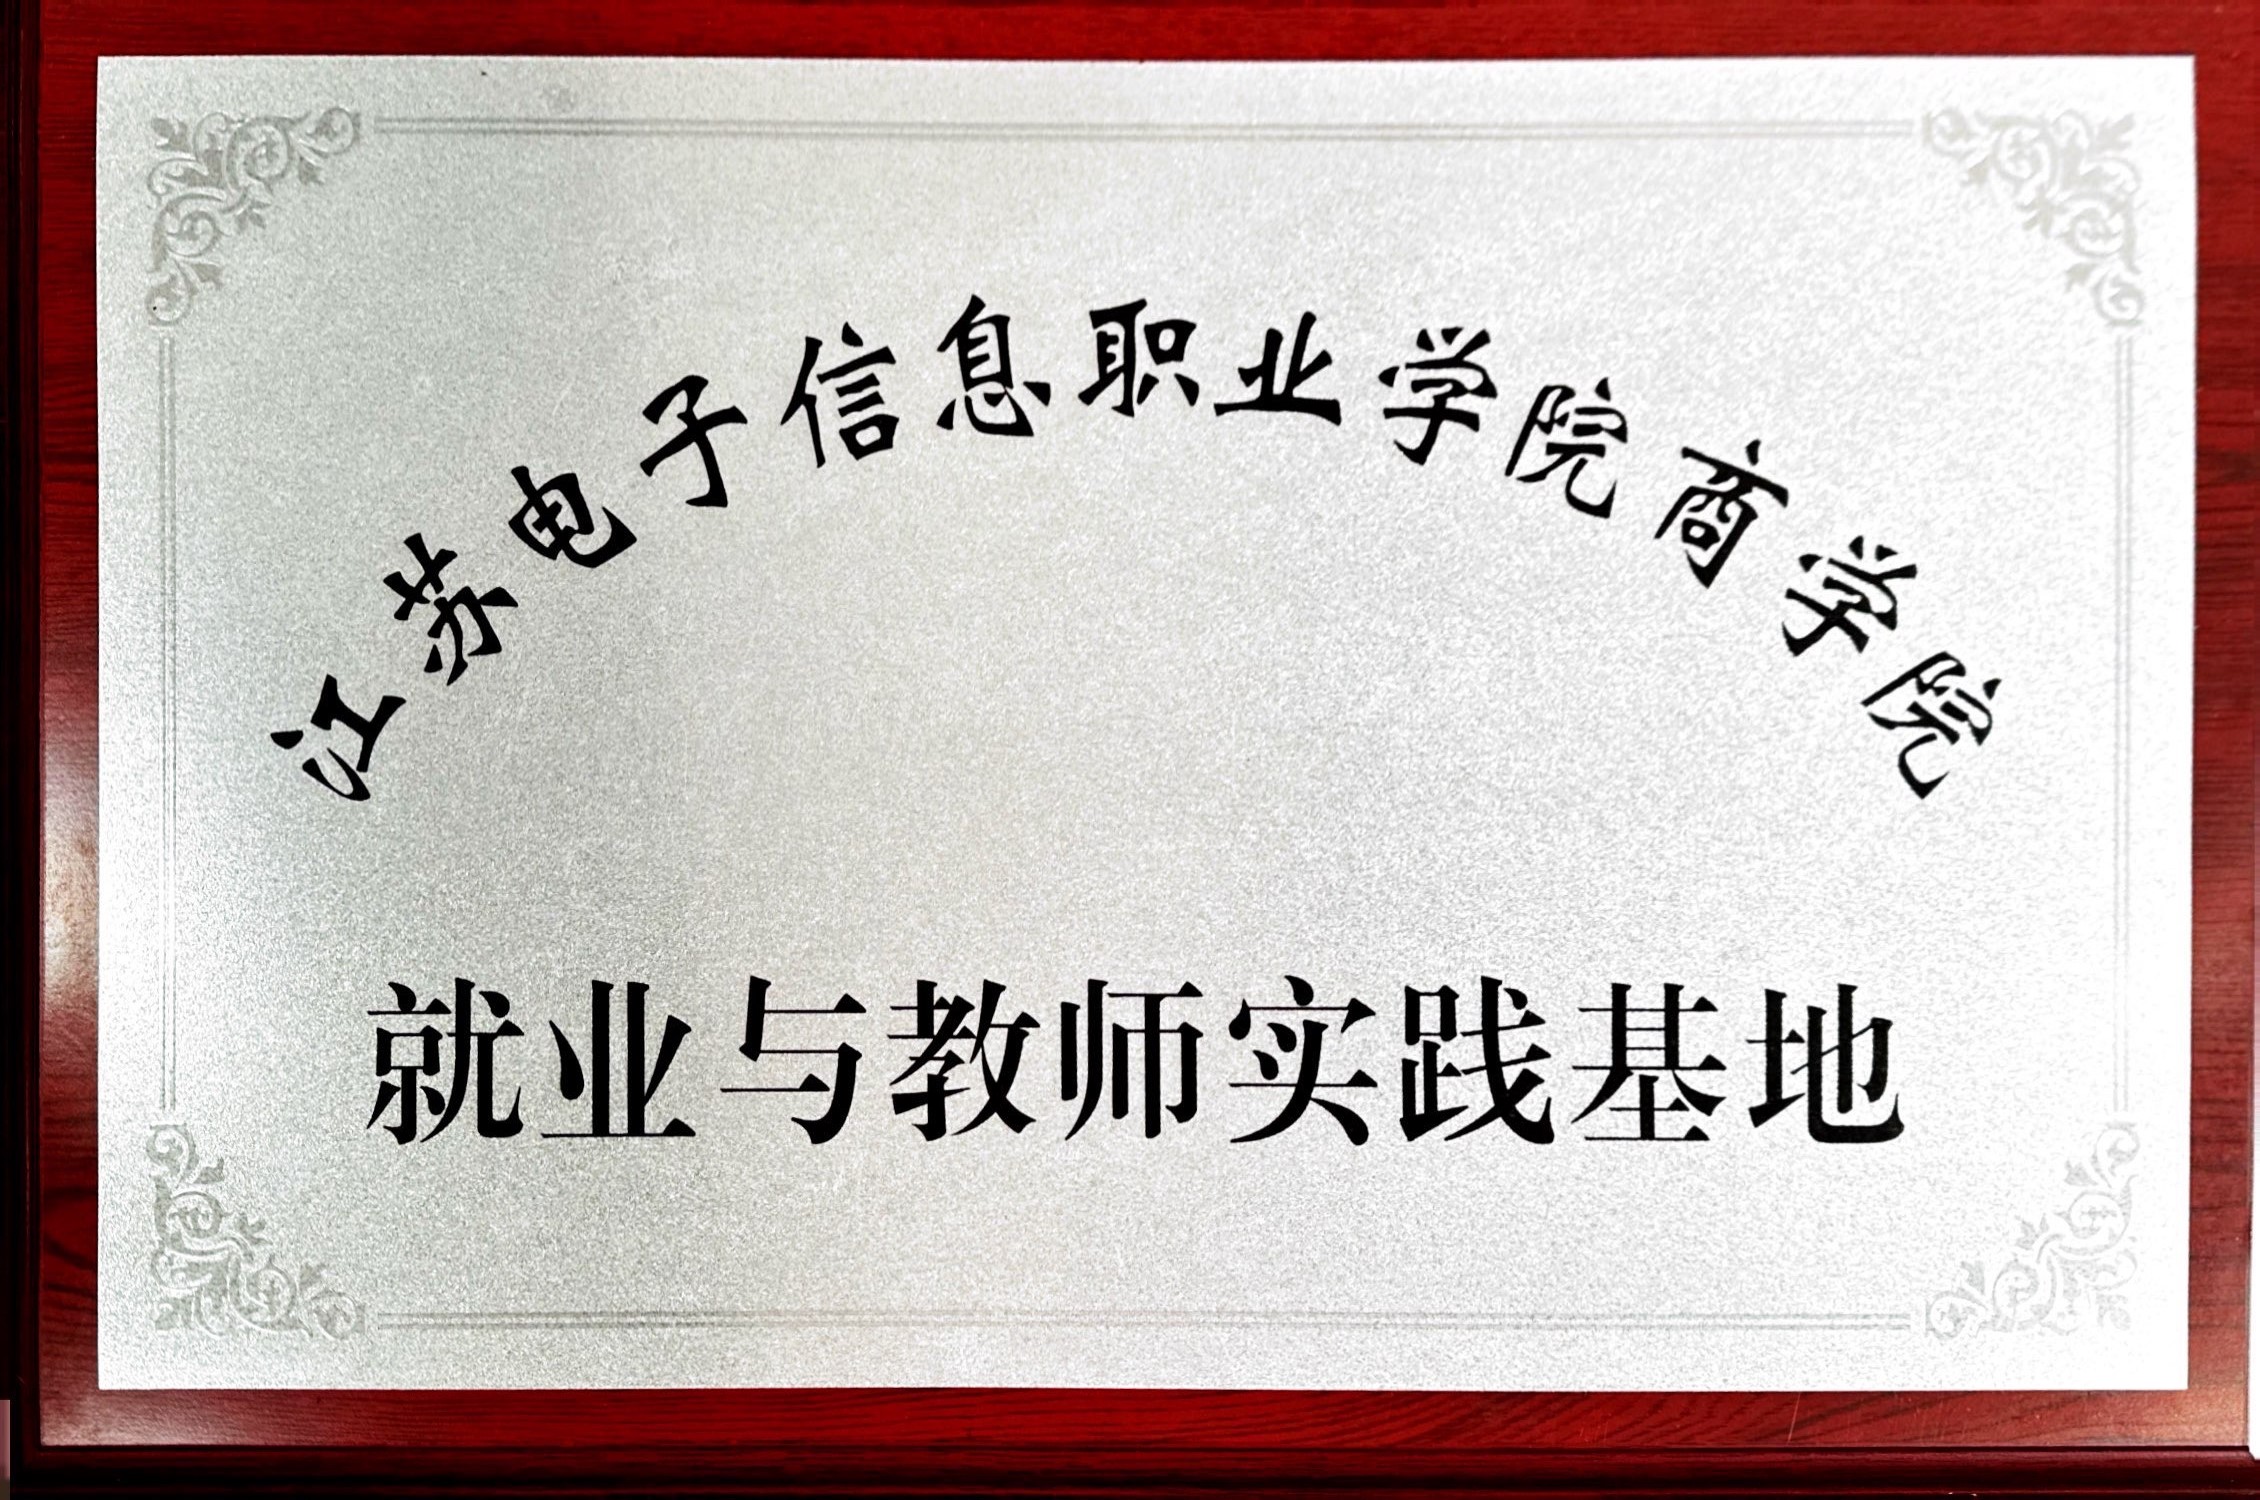 江苏电子信息职业学院商学院
就业与教师实践基地